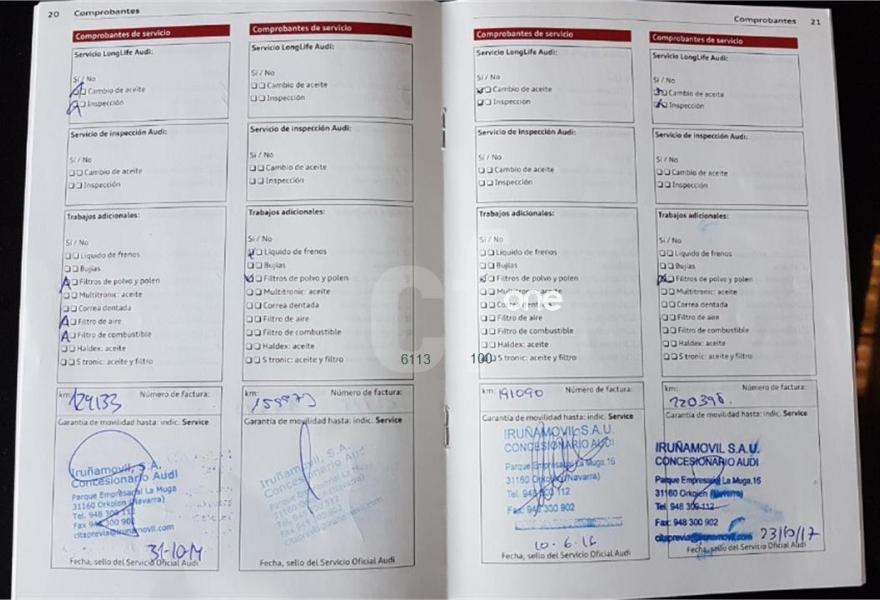 20 Comprobantes
Comprobantes de servicio
Servicio LongLife Audi:
Sí / No
Cambio de aceite
Inspección
Servicio de inspección Audi:
Sí / No
Cambio de aceite
Inspección
Trabajos adicionales:
Sí / No
Líquido de frenos
Bujías
Filtros de polvo y polen
Multitronic: aceite
Correa dentada
Filtro de aire
Filtro de combustible
Haldex: aceite
S tronic: aceite y filtro
km: 129133 Número de factura:
Garantía de movilidad hasta: indic. Service
Iruñamovil, S.A.
Concesionario Audi
Parque Empresarial La Muga
31160 Orkoien (Navarra)
Tel. 948 309 112
Fax 948 300 902
citaprevia@irunamovil.com
31-10-14
Fecha, sello del Servicio Oficial Audi
Comprobantes de servicio
Servicio LongLife Audi:
Sí / No
Cambio de aceite
Inspección
Servicio de inspección Audi:
Sí / No
Cambio de aceite
Inspección
Trabajos adicionales:
Sí / No
Líquido de frenos
Bujías
Filtros de polvo y polen
Multitronic: aceite
Correa dentada
Filtro de aire
Filtro de combustible
Haldex: aceite
S tronic: aceite y filtro
6113
km: Número de factura:
Garantía de movilidad hasta: indic. Service
Iruñamovil, S.A.
Concesionario Audi
Parque Empresarial
31160 Orkoien
Fecha, sello del Servicio Oficial Audi
Comprobantes 21
Comprobantes de servicio
Servicio LongLife Audi:
Sí / No
Cambio de aceite
Inspección
Servicio de inspección Audi:
Sí / No
Cambio de aceite
Inspección
Trabajos adicionales:
Sí / No
Líquido de frenos
Bujías
Filtros de polvo y polen
Multitronic: aceite
one
Correa dentada
Filtro de aire
Filtro de combustible
Haldex: aceite
100
S tronic: aceite y filtro
km: 191090 Número de factura:
Garantía de movilidad hasta: indic. Service
IRUÑAMOVIL S.A.U.
CONCESIONARIO AUDI
Parque Empresarial La Muga, 16
31160 Orkoien (Navarra)
Tel. 948 309 112
Fax: 948 300 902
10-6-16
Fecha, sello del Servicio Oficial Audi
Comprobantes de servicio
Servicio LongLife Audi:
Sí / No
Cambio de aceite
Inspección
Servicio de inspección Audi:
Sí / No
Cambio de aceite
Inspección
Trabajos adicionales:
Sí / No
Líquido de frenos
Bujías
Filtros de polvo y polen
Multitronic: aceite
Correa dentada
Filtro de aire
Filtro de combustible
Haldex: aceite
S tronic: aceite y filtro
km: 220398. Número de factura:
Garantía de movilidad hasta: indic. Service
IRUÑAMOVIL S.A.U.
CONCESIONARIO AUDI
Parque Empresarial La Muga, 16
31160 Orkoien (Navarra)
Tel. 948 309 112
Fax: 948 300 902
citaprevia@irunamovil.com
23/10/17
Fecha, sello del Servicio Oficial Audi